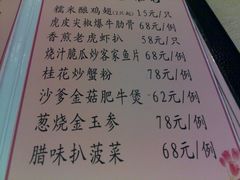 糯米酿鸡翅(2只起) 15元/只
虎皮尖椒爆牛肋骨 68元/例
香煎老虎虾扒 58元/只
烧汁脆瓜炒客家鱼片 68元/例
桂花炒蟹粉 78元/例
沙爹金菇肥牛煲 62元/例
葱烧金玉参 78元/例
腊味扒菠菜 68元/例